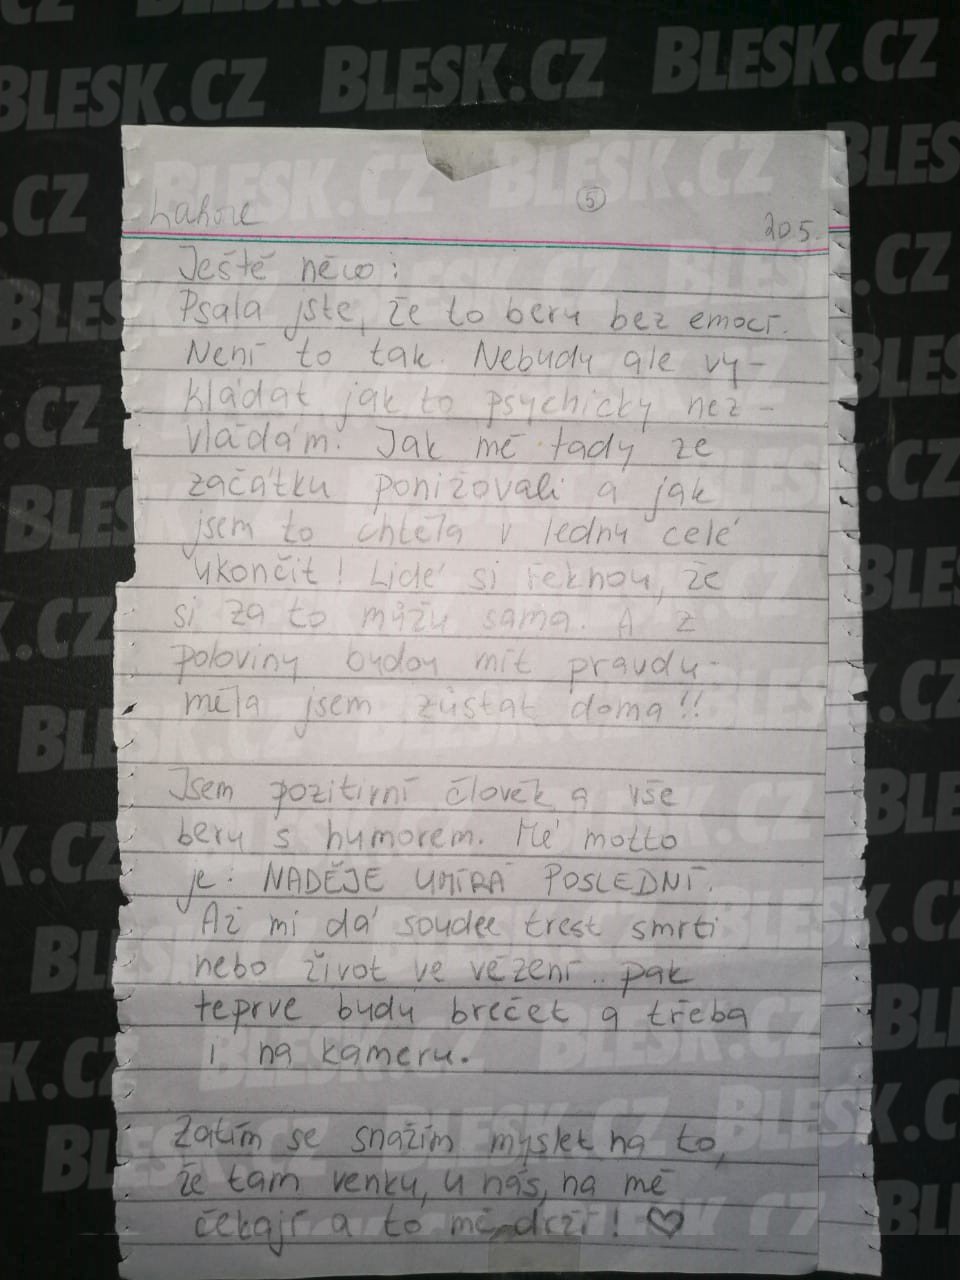 BLESK.CZ
Lahore
5
20.5.
Ještě něco:
Psala jste, že to beru bez emocí.
Není to tak. Nebudu ale vy-
kládat jak to psychicky nez-
vládám. Jak mě tady ze
začátku ponižovali a jak
jsem to chtěla v lednu celé
ukončit! Lidé si řeknou, že
si za to můžu sama. A z
poloviny budou mít pravdu-
měla jsem zůstat doma!!
Jsem pozitivní člověk a vše
beru s humorem. Mé motto
je: NADĚJE UMÍRÁ POSLEDNÍ.
Až mi dá soudce trest smrti
nebo život ve vězení.. pak
teprve budu brečet a třeba
i na kameru.
Zatím se snažím myslet na to,
že tam venku, u nás, na mě
čekají a to mě drží! ♡